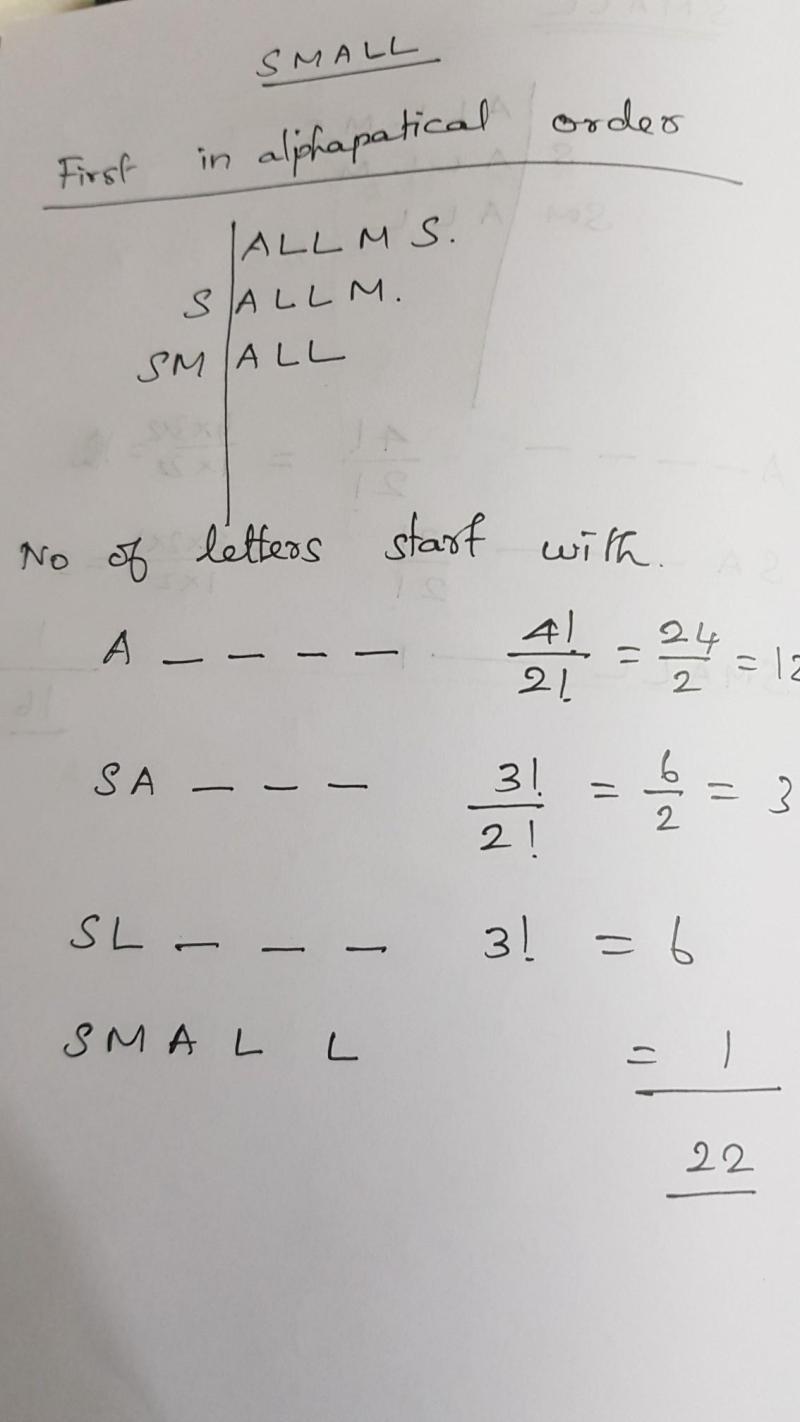 SMALL
First in alphapatical order
ALLMS.
S ALLM.
SM ALL
No of letters start with.
A _ _ _ _ 4!/2! = 24/2 = 12
SA _ _ _ 3!/2! = 6/2 = 3
SL _ _ _ 3! = 6
SMALL = 1
22